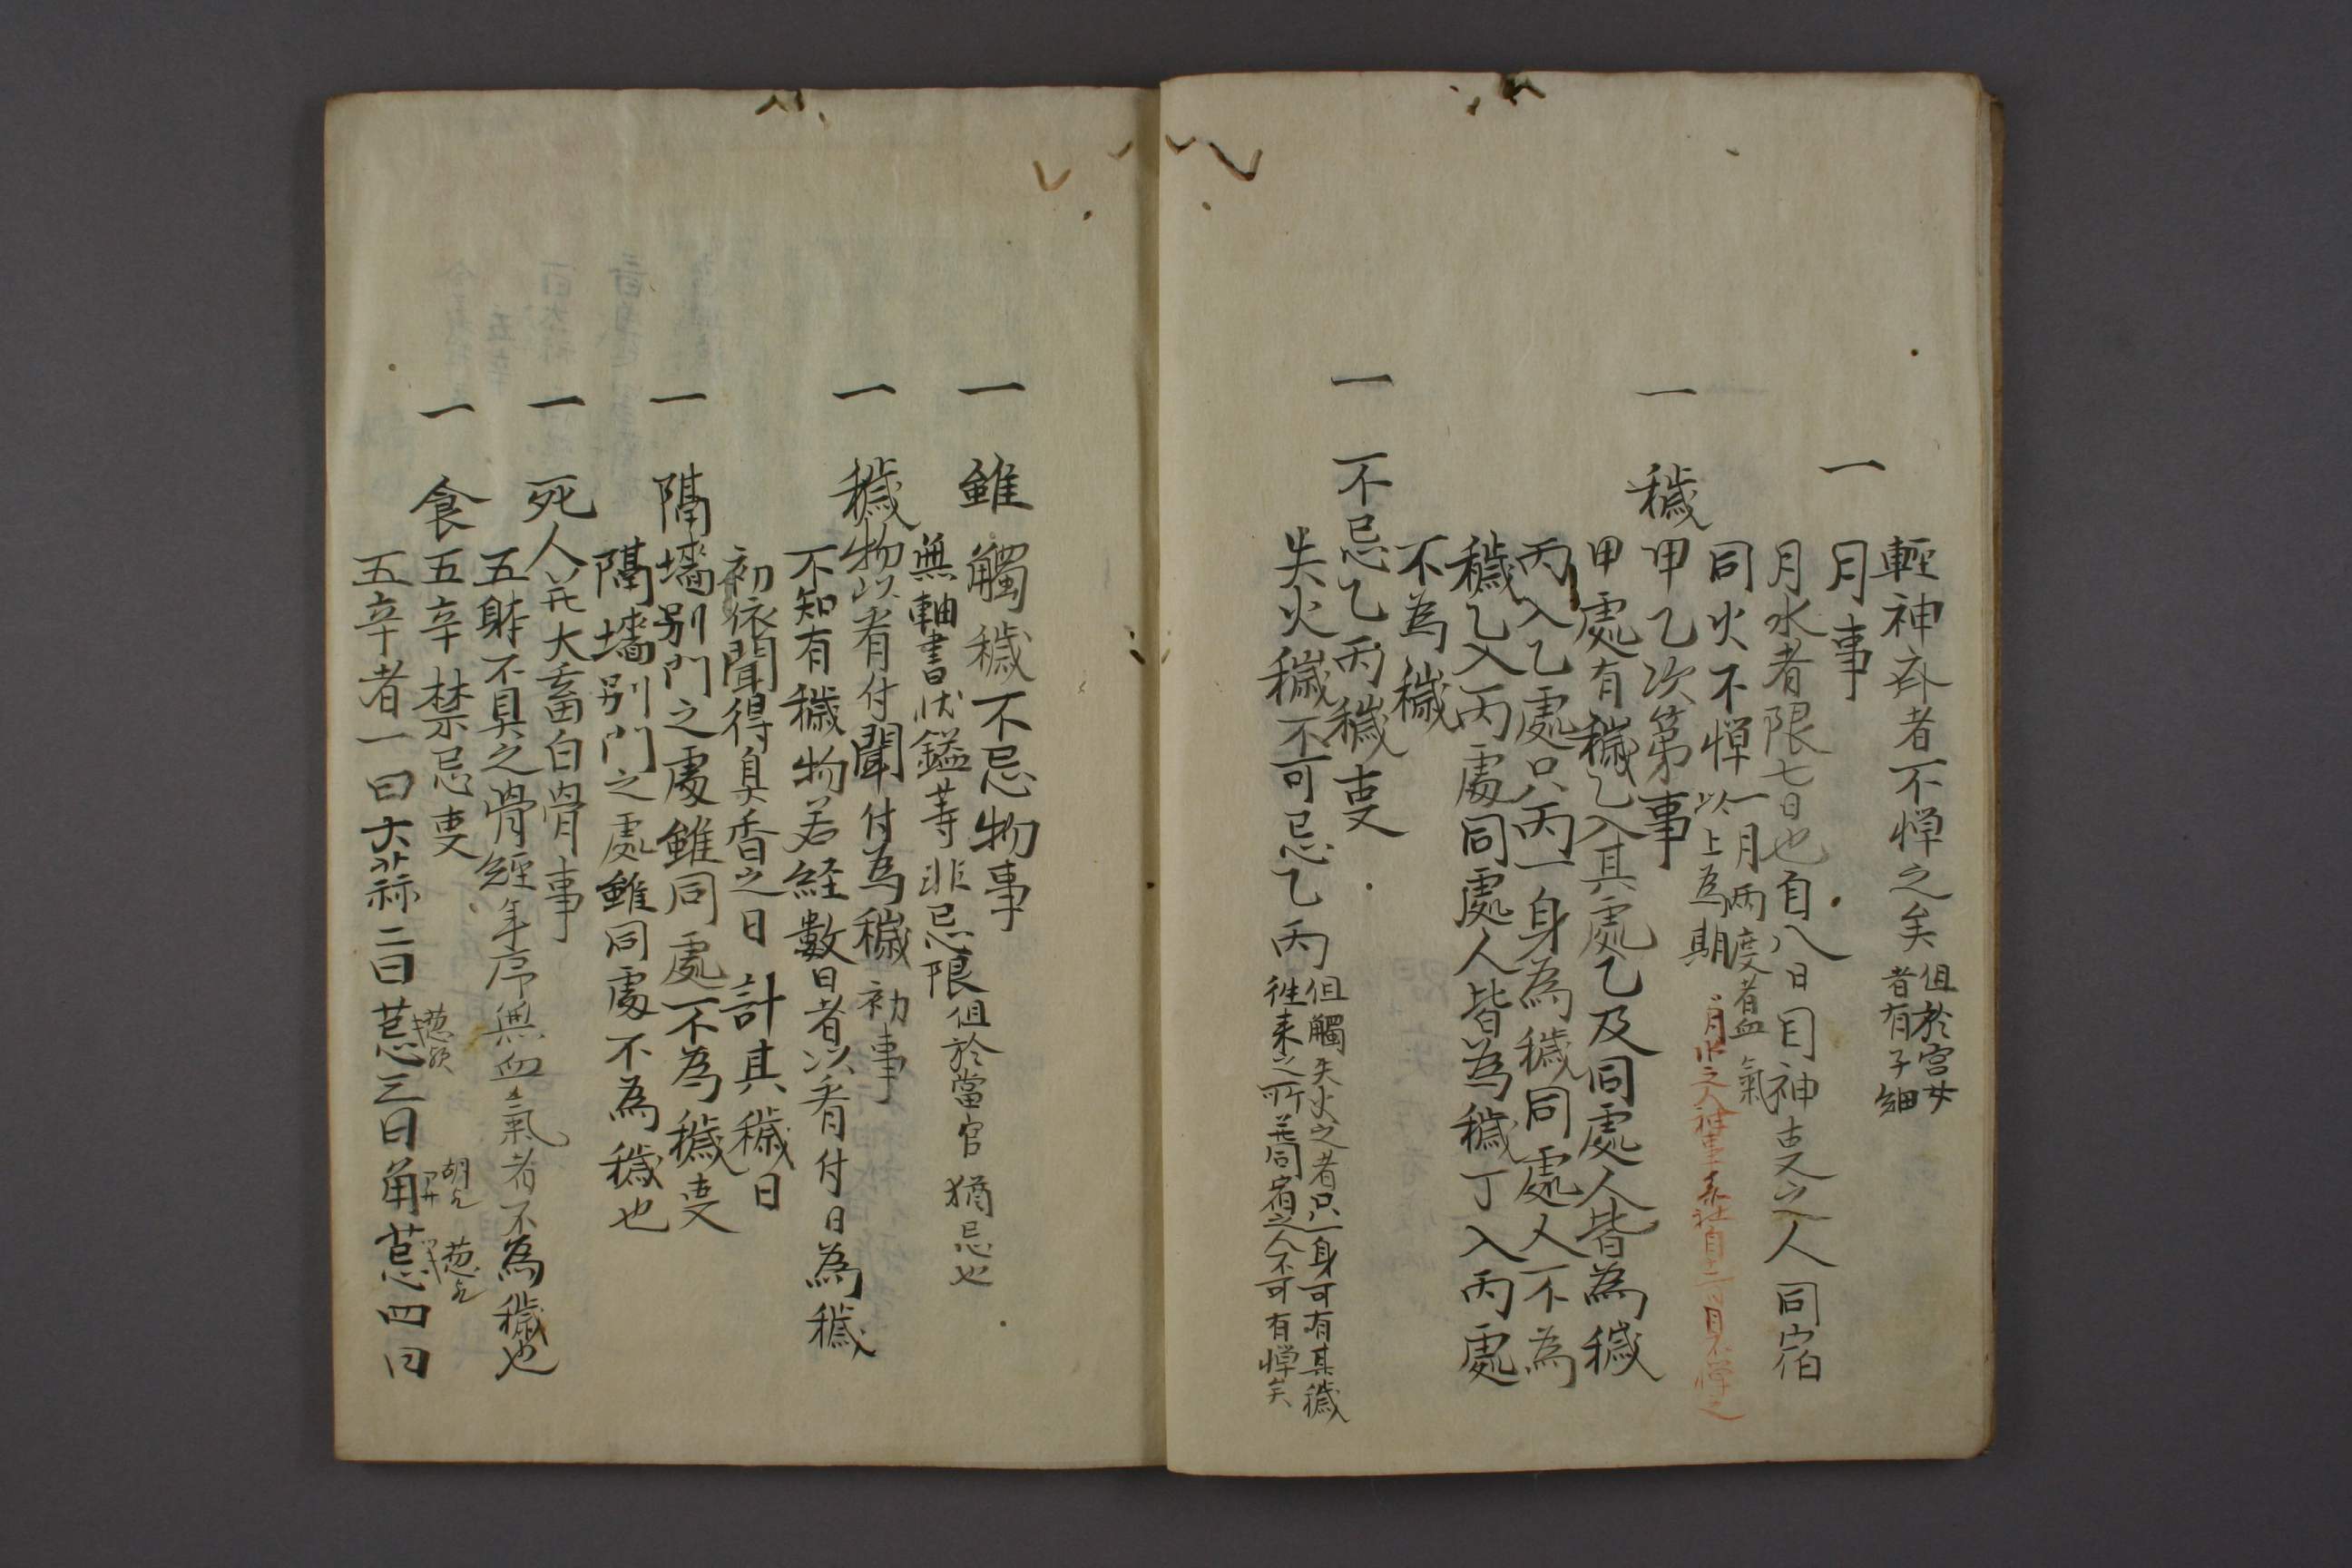 輕神斎者不憚之矣 但於宮女
者有子細
一 月事
月水者限七日也自八日目神事之人同宿
同火不憚 一月両度者血氣
以上為期
月水之人神事 社自 日不憚之
一 穢甲乙次第事
甲處有穢乙入其處乙及同處人皆為穢
丙入乙處只丙一身為穢同處人不為
穢乙入丙處同處人皆為穢丁入丙處
不為穢
一 不忌乙丙穢事
失火穢不可忌乙丙 但觸失火之者只一身可有其穢
往来之所并同宿之人不可有憚矣
一 雖觸穢不忌物事
無軸書状鎰等非忌限 但於當官猶忌也
一 穢物以看付聞付為穢初事
不知有穢物若経數日者以看付日為穢
初依聞得臭香之日計其穢日
一 隔墻別門之處雖同處不為穢事
隔墻別門之處雖同處不為穢也
一 死人并大畜白骨事
五躰不具之骨經年序無血氣者不為穢也
一 食五辛禁忌事
五辛者一曰大蒜二曰茖三曰角茖四曰